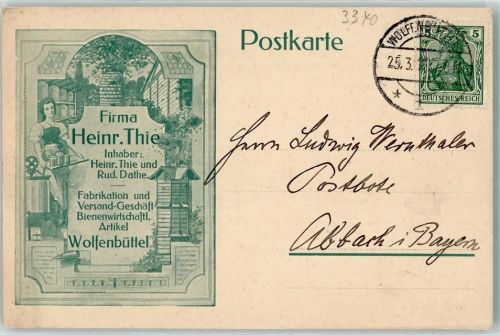 3340
Postkarte
WOLFENBÜTTEL
25.3.
5
DEUTSCHES REICH
Firma
Heinr. Thie
Inhaber:
Heinr. Thie und
Rud. Dathe.
Fabrikation und
Versand-Geschäft
Bienenwirtschaftl.
Artikel
Wolfenbüttel
Herrn Ludwig Wernthaler
Postbote
Abbach i Bayern